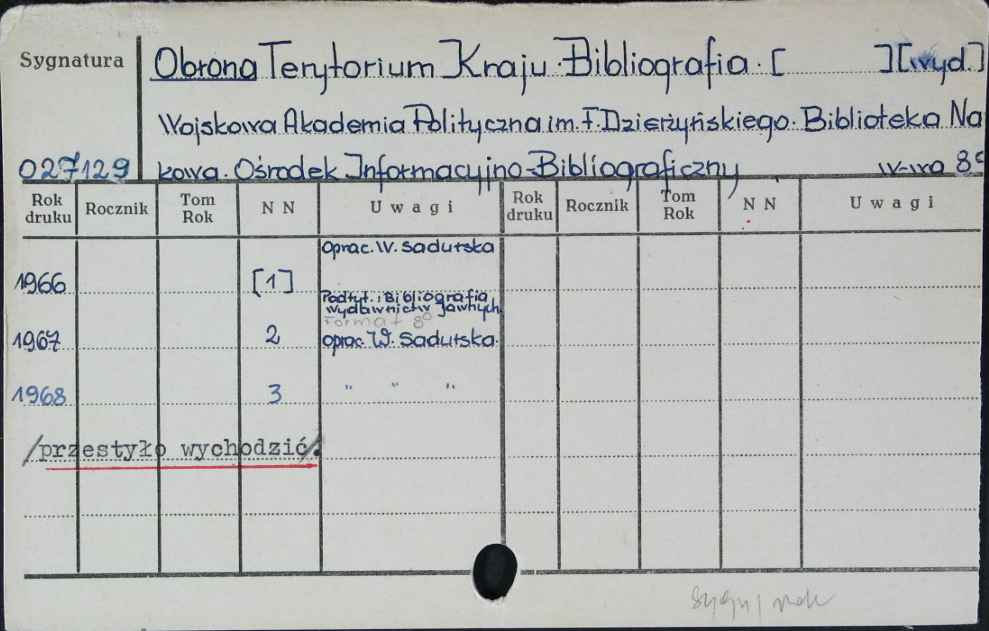 Sygnatura Obrona Terytorium Kraju. Bibliografia. [ ] [wyd.]
Wojskowa Akademia Polityczna im. F. Dzierżyńskiego. Biblioteka Na
027129 kowa. Ośrodek Informacyjno-Bibliograficzny W-wa 8°
Rok druku Rocznik Tom Rok N N Uwagi Rok druku Rocznik Tom Rok N N Uwagi
Oprac. W. Sadurska
1966 [1]
Podtyt.: Bibliografia
wydawnictw jawnych.
Format 8°
1967 2 oprac. W. Sadurska.
1968 3 " " "
/przestyło wychodzić/.